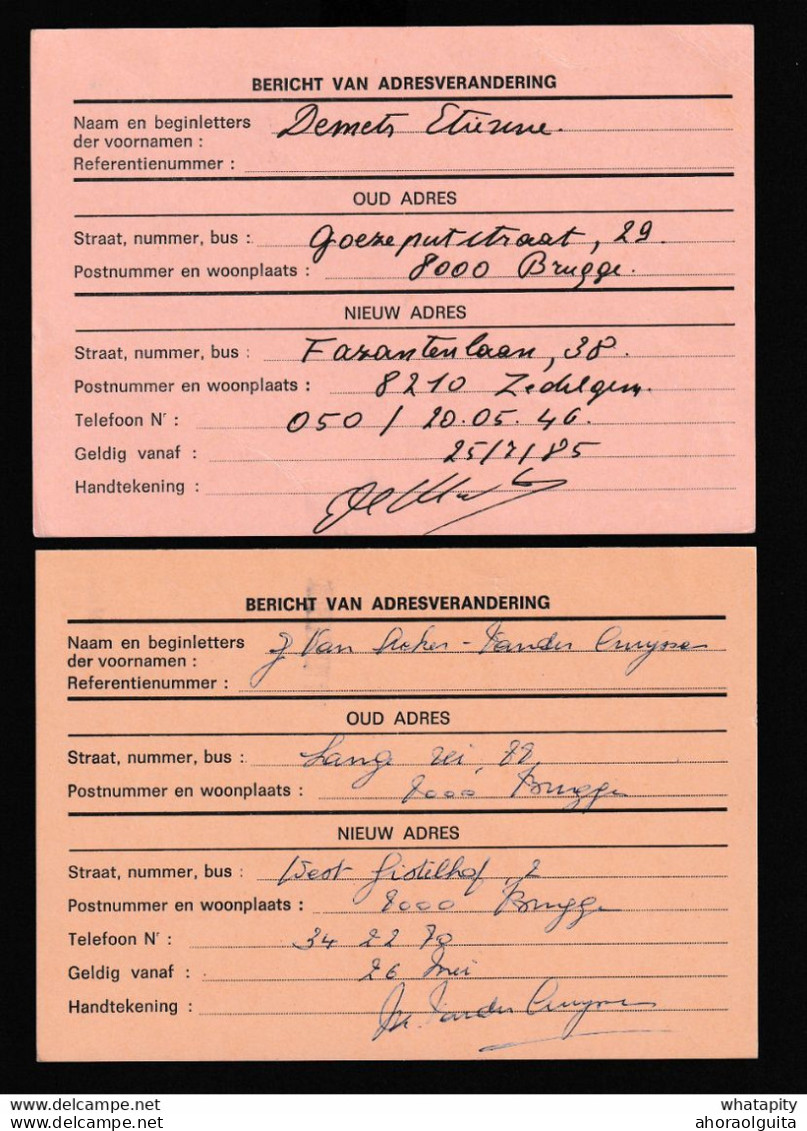 BERICHT VAN ADRESVERANDERING
Naam en beginletters der voornamen : Demets Etienne.
Referentienummer :
OUD ADRES
Straat, nummer, bus : Goezeputstraat, 29.
Postnummer en woonplaats : 8000 Brugge.
NIEUW ADRES
Straat, nummer, bus : Fazantenlaan, 38.
Postnummer en woonplaats : 8210 Zedelgem.
Telefoon Nr : 050 / 20.05.46.
Geldig vanaf : 25/7/85
Handtekening :
BERICHT VAN ADRESVERANDERING
Naam en beginletters der voornamen : J Van - Vander Cruysse
Referentienummer :
OUD ADRES
Straat, nummer, bus : Lange rei,
Postnummer en woonplaats : 8000 Brugge
NIEUW ADRES
Straat, nummer, bus : West Gistelhof, 2
Postnummer en woonplaats : 8000 Brugge
Telefoon Nr : 34 22 70
Geldig vanaf : 26 Mei
Handtekening : Vander Cruysse
https://www.delcampe.net
whatapity
ahoraolguita